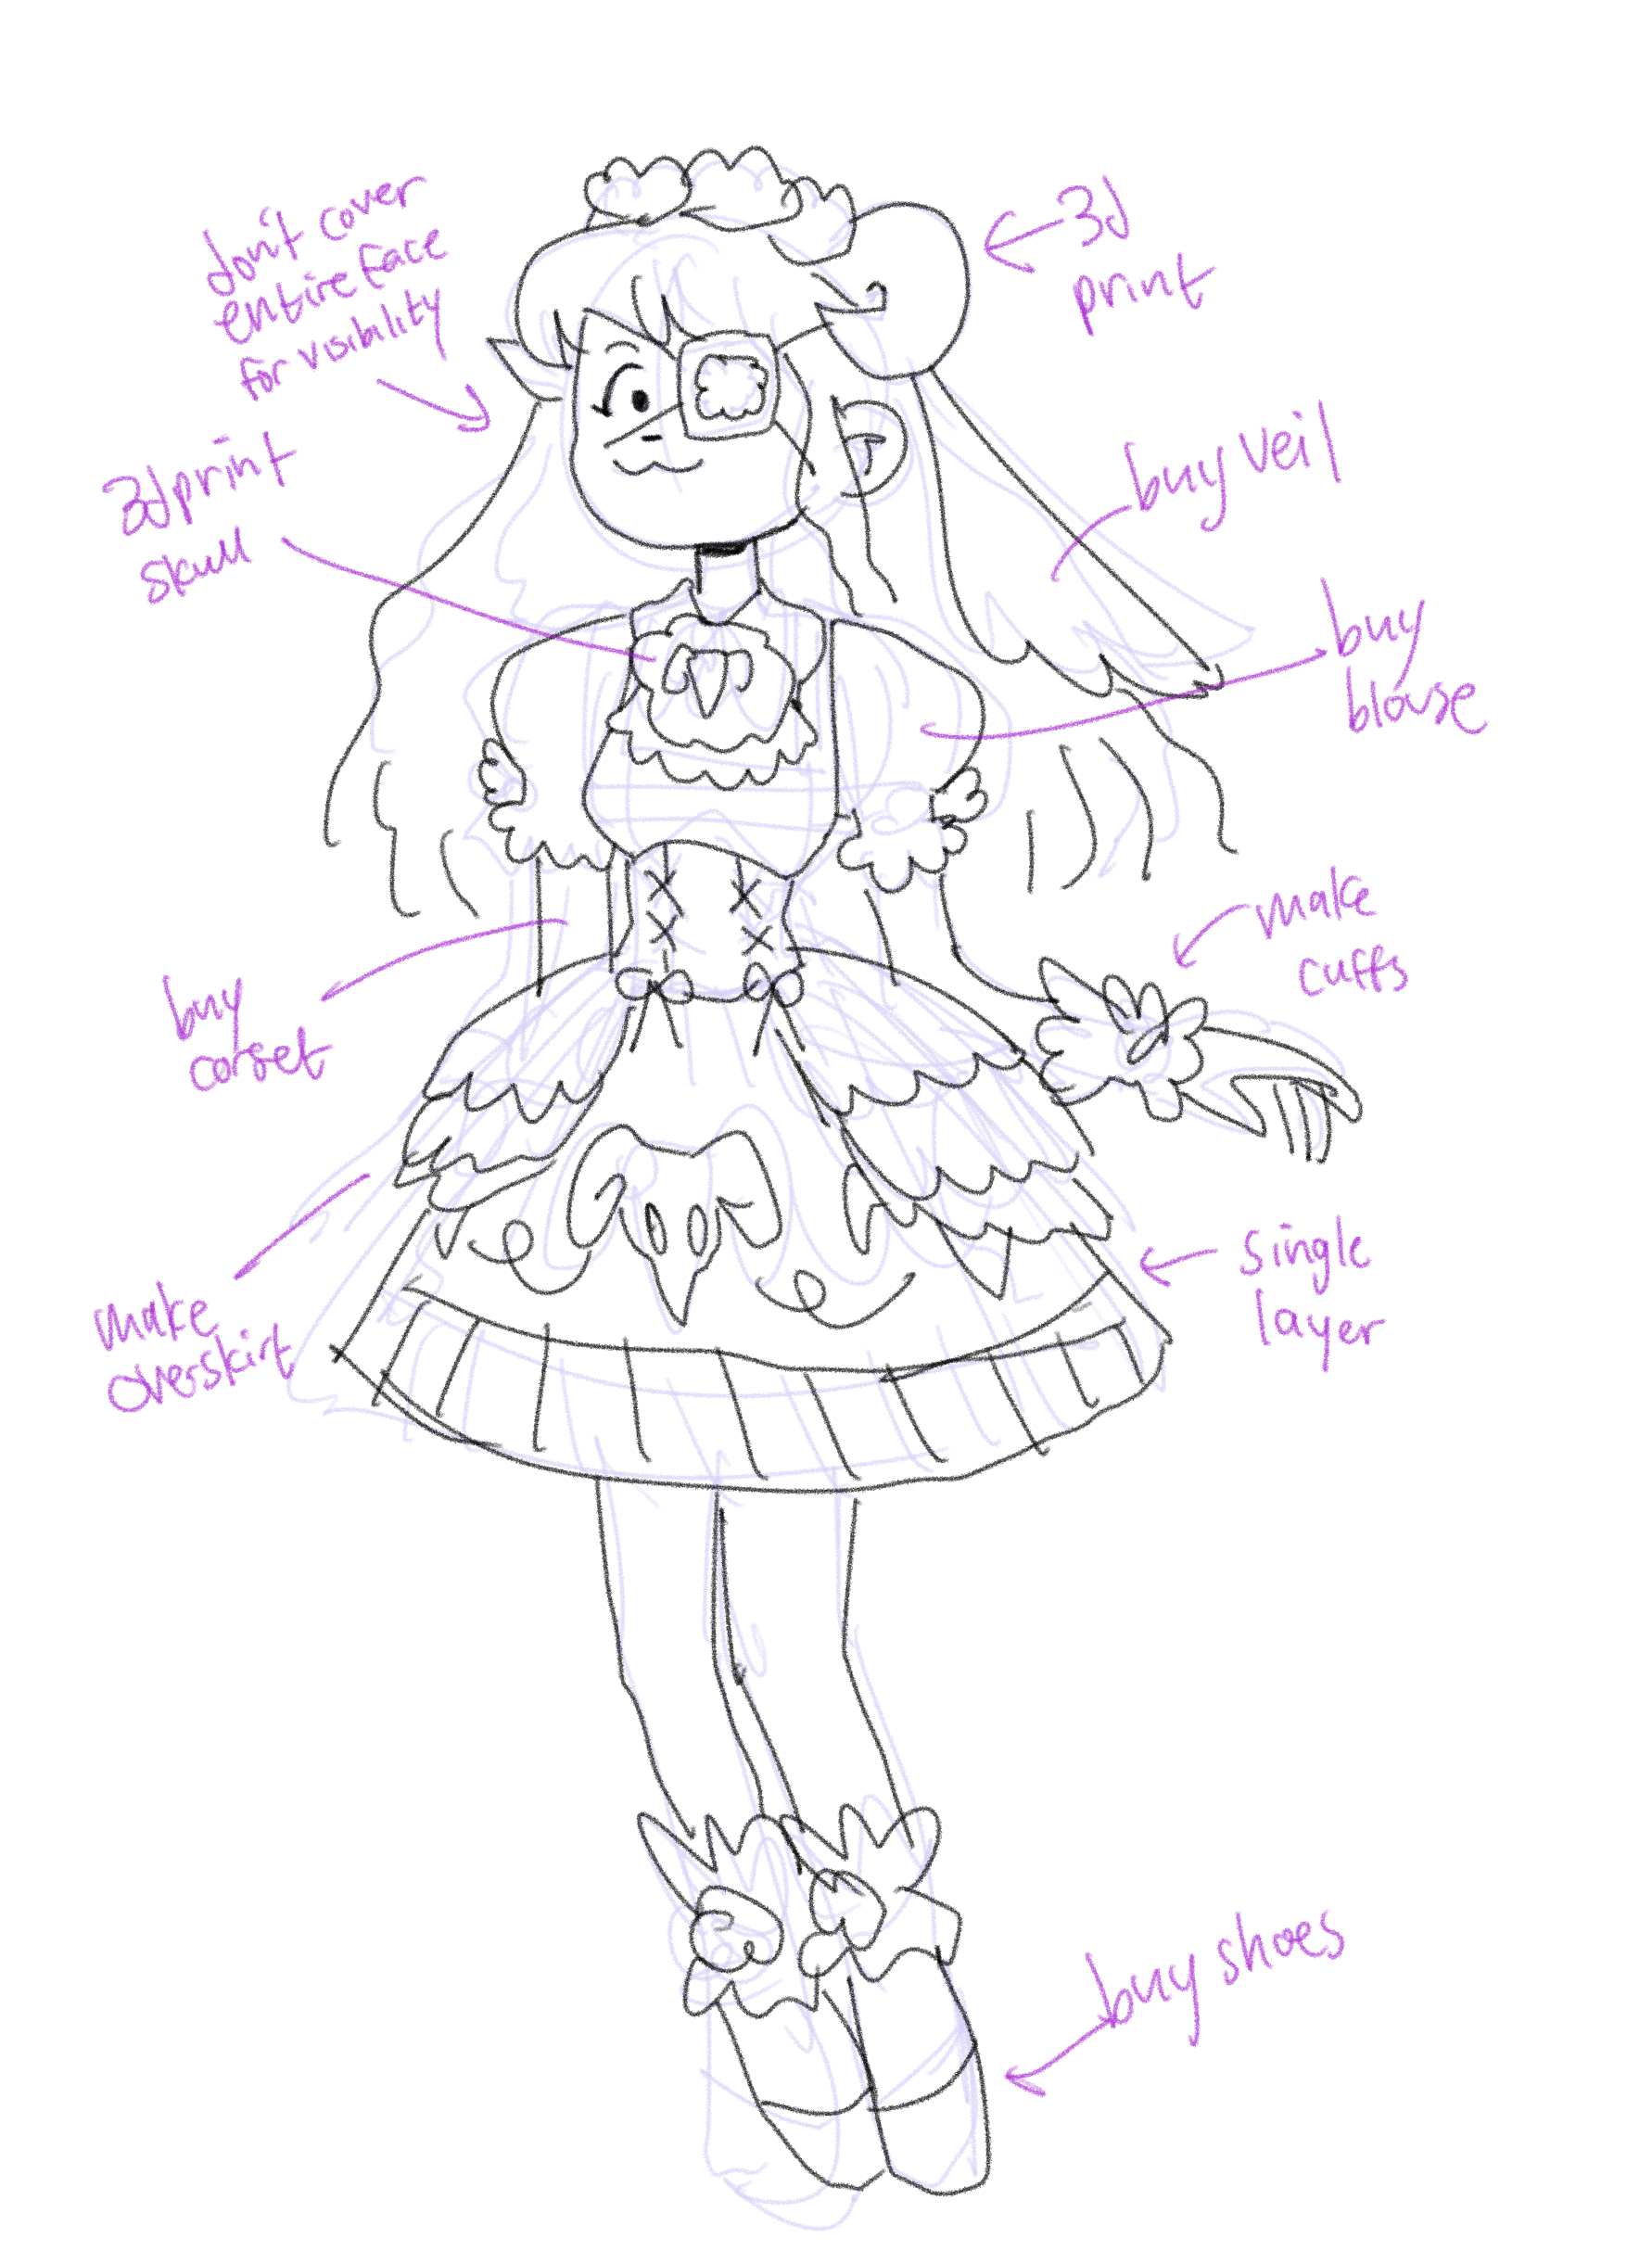 don't cover
entire face
for visibility
3d
print
3dprint
skull
buy veil
buy
blouse
make
cuffs
buy
corset
single
layer
make
overskirt
buy shoes